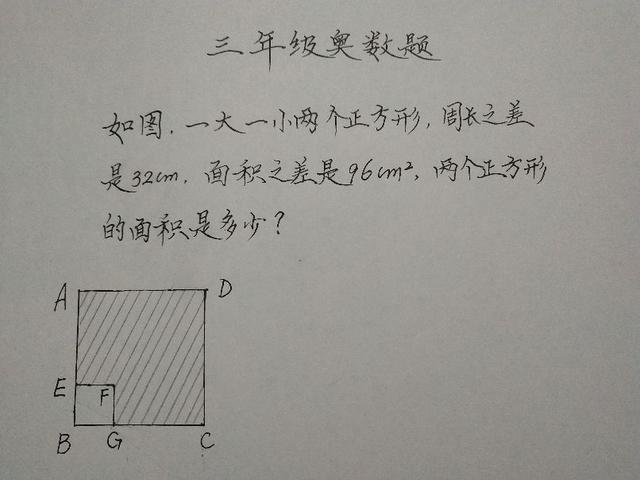 三年级奥数题
如图,一大一小两个正方形,周长之差
是32cm,面积之差是96cm²,两个正方形
的面积是多少?
A D
E F
B G C